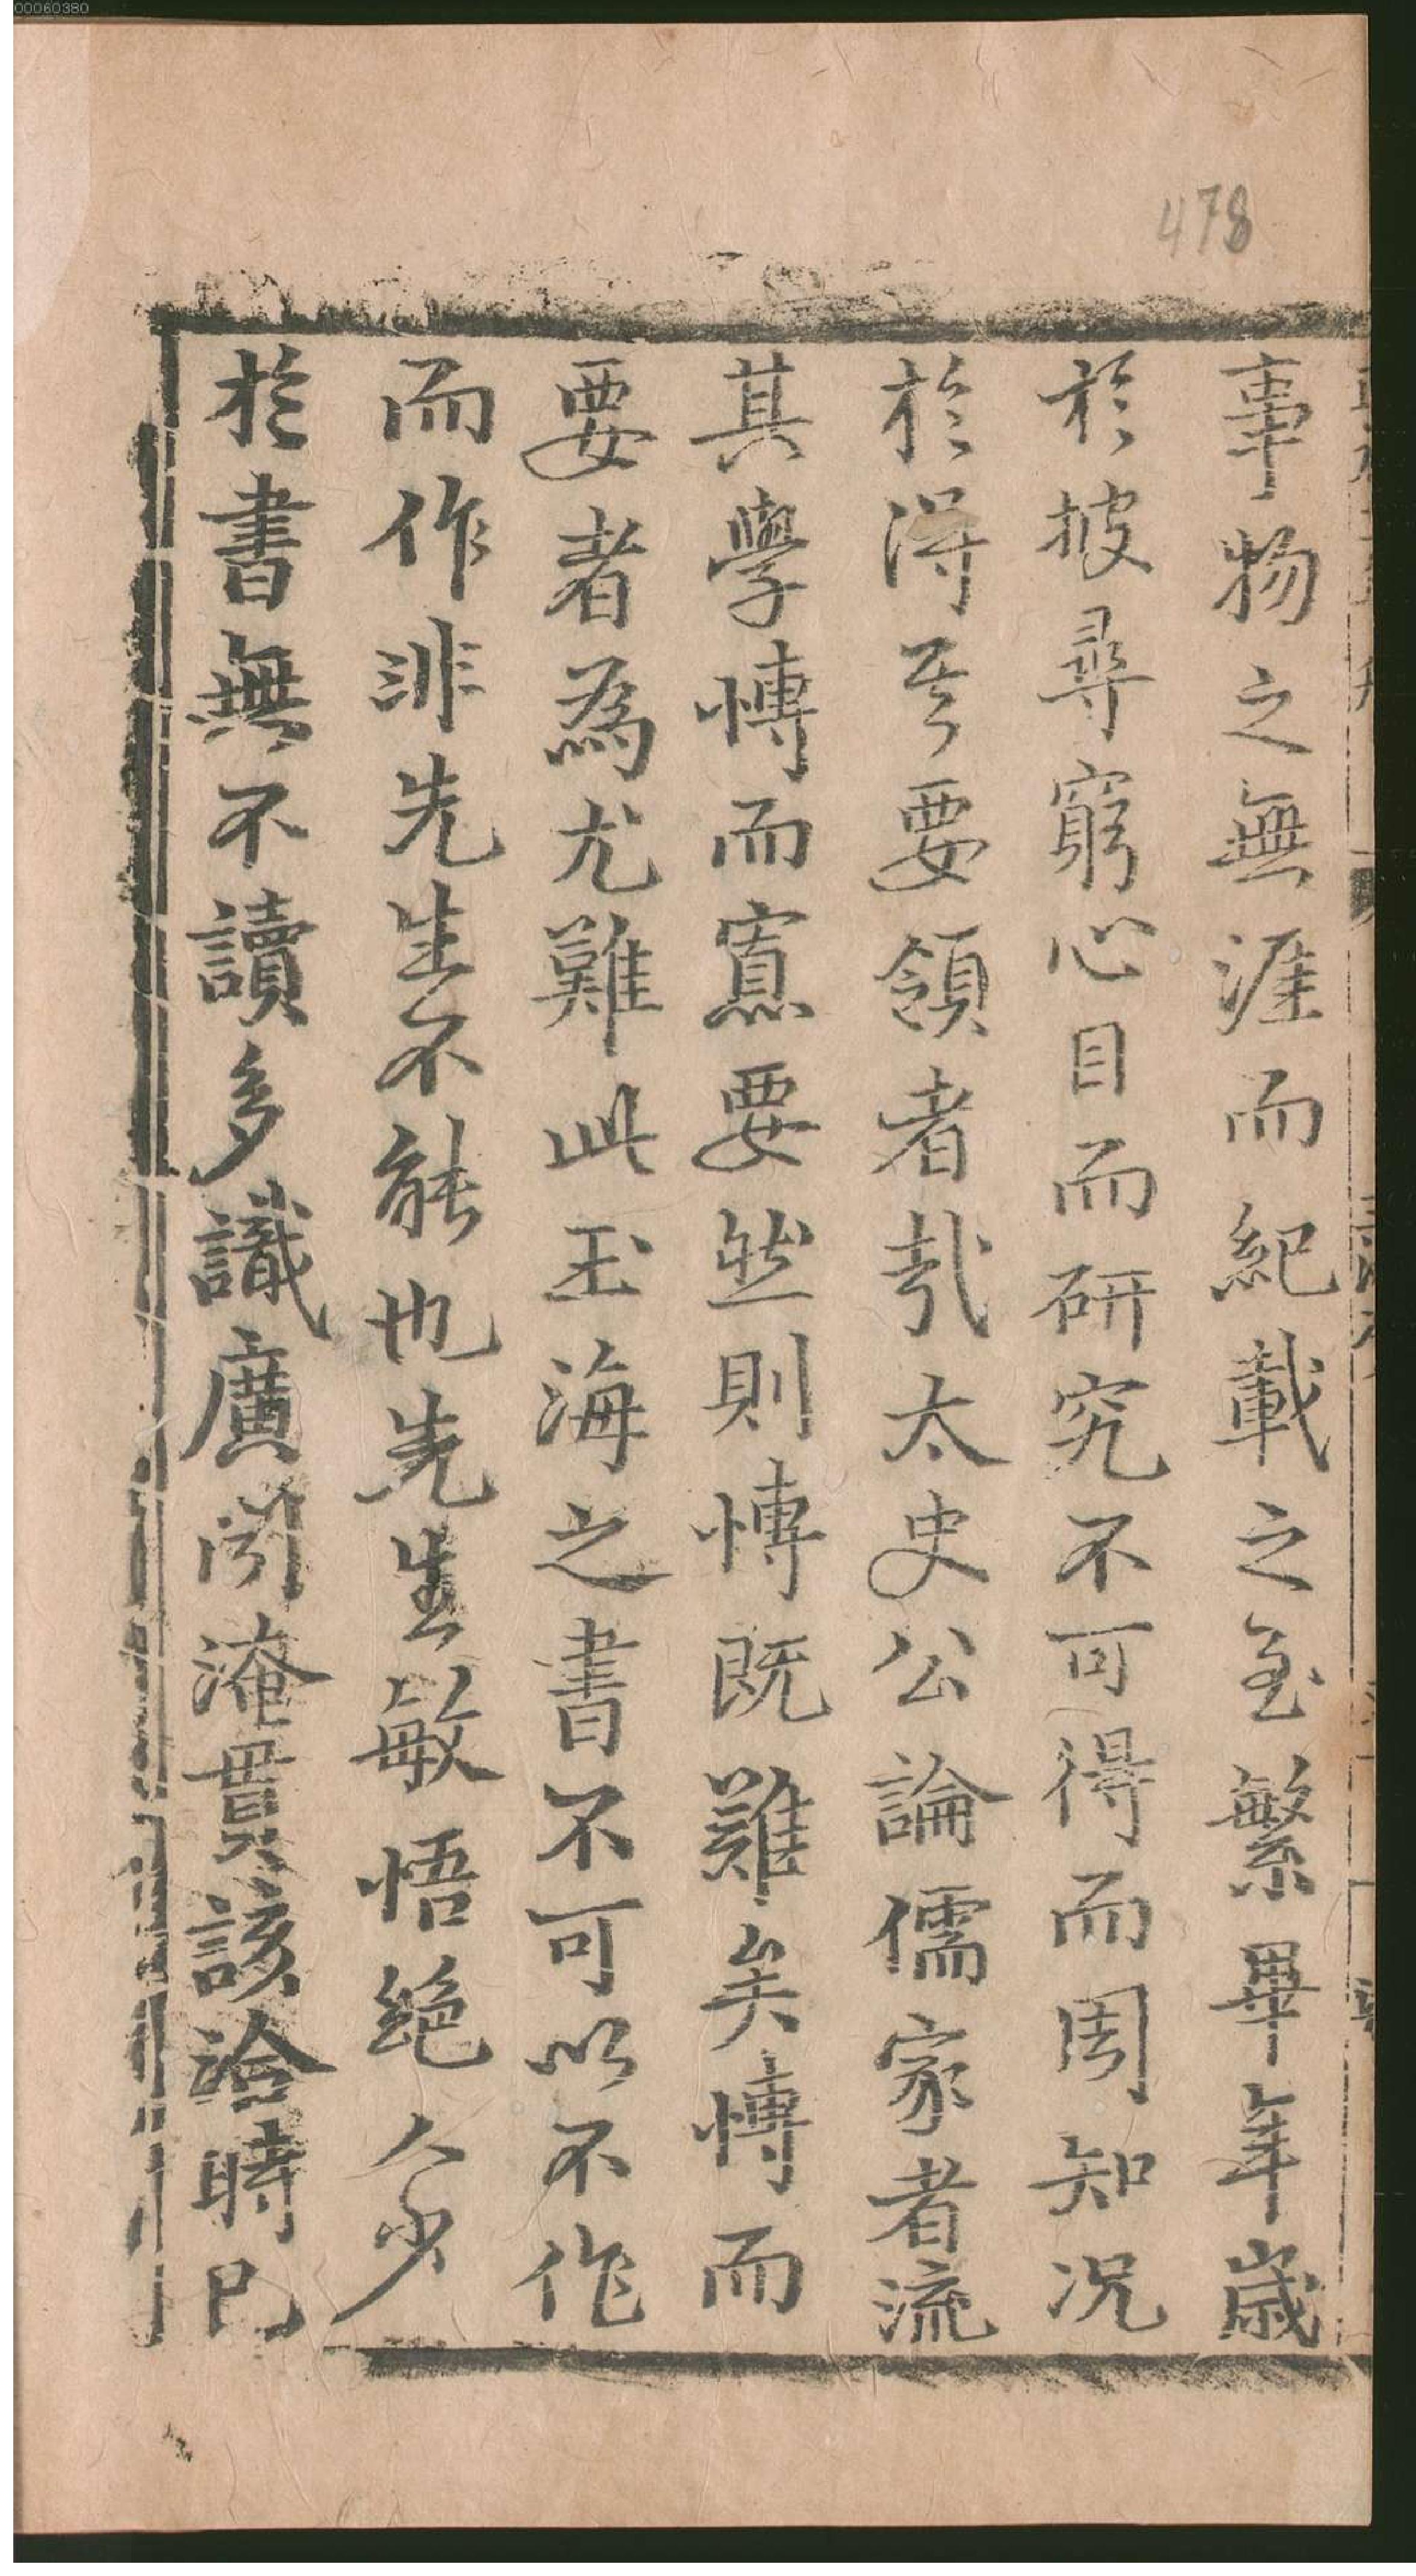 00060380
478
事物之無涯而紀載之至繁畢年歲
於披尋窮心目而研究不可得而周知况
於得其要領者哉太史公論儒家者流
其學博而寡要然則博既難矣博而
要者為尤難此玉海之書不可以不作
而作非先生不能也先生敏悟絶人少
於書無不讀多識廣聞淹貫該洽時已